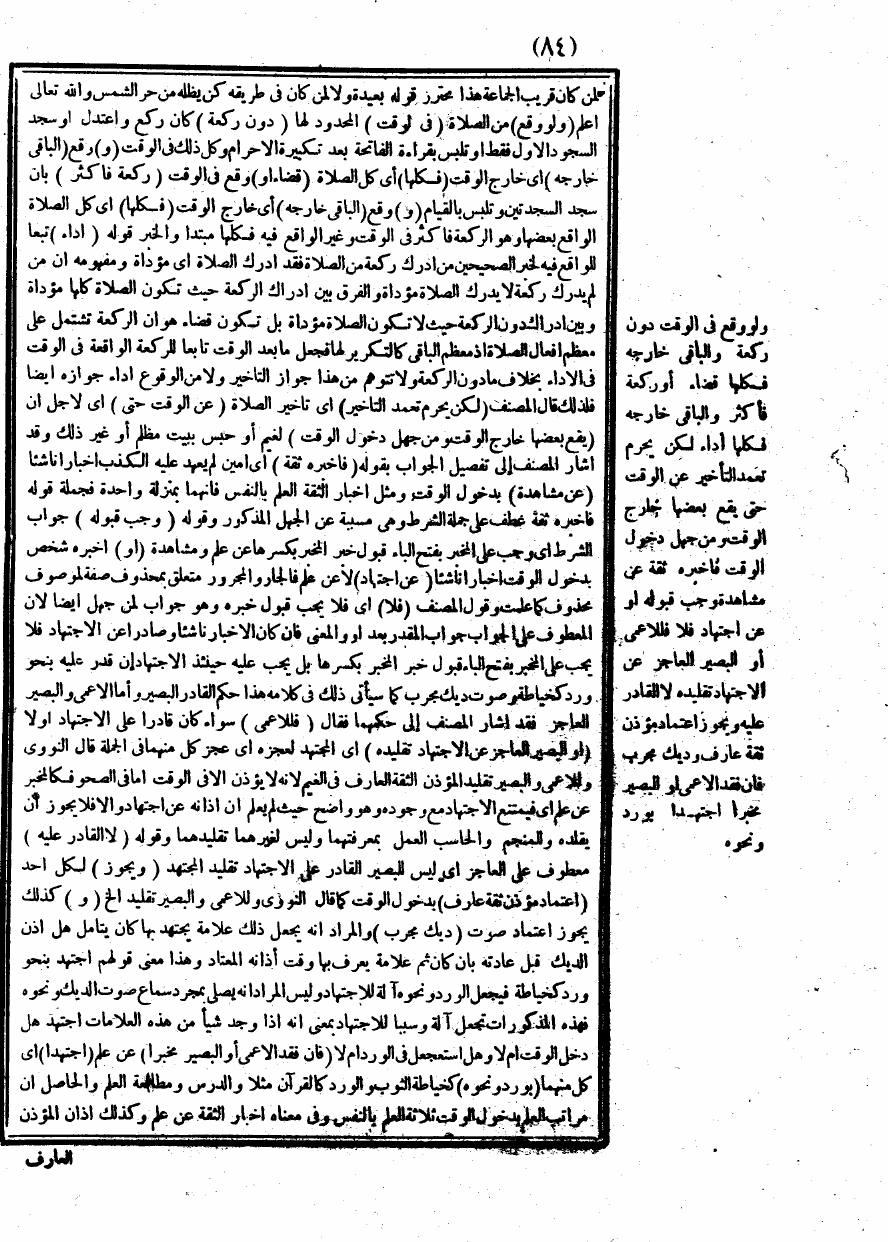 (٨٤)
لمن كان قريب الجماعة هذا محترز قوله بعيدة ولا لمن كان فى طريقه كن يظله من حر الشمس والله تعالى
اعلم (ولو وقع) من الصلاة (فى لوقت) المحدود لها (دون ركعة) كان ركع واعتدل او سجد
السجود الاول فقط او تلبس بقراءة الفاتحة بعد تكبيرة الاحرام وكل ذلك فى الوقت (و) وقع (الباقى
خارجه) اى خارج الوقت (فكلها) أى كل الصلاة (قضاء او) وقع فى الوقت (ركعة فاكثر) بان
سجد السجدتين وتلبس بالقيام (و) وقع (الباقى خارجه) أى خارج الوقت (فكلها) اى كل الصلاة
الواقع بعضها وهو الركعة فاكثر فى الوقت وغير الواقع فيه فكلها مبتدا والخبر قوله (اداء) تبعا
للواقع فيه لخبر الصحيحين من ادرك ركعة من الصلاة فقد ادرك الصلاة اى مؤداة ومفهومه ان من
لم يدرك ركعة لا يدرك الصلاة مؤداة والفرق بين ادراك الركعة حيث تكون الصلاة كلها مؤداة
وبين ادراك دون الركعة حيث لا تكون الصلاة مؤداة بل تكون قضاء هو ان الركعة تشتمل على
معظم افعال الصلاة اذ معظم الباقى كالتكرير لها فجعل ما بعد الوقت تابعا للركعة الواقعة فى الوقت
فى الاداء بخلاف مادون الركعة ولا تتوهم من هذا جواز التاخير ولا من الوقوع اداء جوازه ايضا
فلذلك قال المصنف (لكن يحرم تعمد التاخير) اى تاخير الصلاة (عن الوقت حتى) اى لاجل ان
(يقع بعضها خارج الوقت ومن جهل دخول الوقت) لغيم أو حبس ببيت مظلم أو غير ذلك وقد
اشار المصنف إلى تفصيل الجواب بقوله (فاخبره ثقة) أى امين لم يعهد عليه الكذب اخبارا ناشئا
(عن مشاهدة) بدخول الوقت ومثل اخبار الثقة العلم بالنفس فانهما بمنزلة واحدة فجملة قوله
فاخبره ثقة عطف على جملة الشرط وهى مسببة عن الجهل المذكور وقوله (وجب قبوله) جواب
الشرط اى وجب على المخبر بفتح الباء قبول خبر المخبر بكسرها عن علم ومشاهدة (او) اخبره شخص
بدخول الوقت اخبارا ناشئا (عن اجتهاد) لا عن علم فالجار والمجرور متعلق بمحذوف صفة لموصوف
محذوف كما علمت وقول المصنف (فلا) اى فلا يجب قبول خبره وهو جواب لمن جهل ايضا لان
المعطوف على الجواب جواب المقدر بعد او والمعنى فان كان الاخبار ناشئا وصادرا عن الاجتهاد فلا
يجب على المخبر بفتح الباء قبول خبر المخبر بكسرها بل يجب عليه حينئذ الاجتهاد إن قدر عليه بنحو
ورد كخياطة وصوت ديك مجرب كما سيأتى ذلك فى كلامه هذا حكم القادر البصير وأما الاعمى والبصير
العاجز فقد اشار المصنف إلى حكمهما فقال (فللاعمى) سواء كان قادرا على الاجتهاد اولا
(او البصير العاجز عن الاجتهاد تقليده) اى المجتهد لعجزه اى عجز كل منهما فى الجملة قال النووى
وللاعمى والبصير تقليد المؤذن الثقة العارف فى الغيم لانه لا يؤذن الا فى الوقت اما فى الصحو فكالمخبر
عن علم اى فيمتنع الاجتهاد مع وجوده وهو واضح حيث لم يعلم ان اذانه عن اجتهاد والا فلا يجوز أن
يقلده وللمنجم والحاسب العمل بمعرفتهما وليس لغيرهما تقليدهما وقوله (لا القادر عليه)
معطوف على العاجز اى ليس للبصير القادر على الاجتهاد تقليد المجتهد (ويجوز) لكل احد
(اعتماد مؤذن ثقة عارف) بدخول الوقت كما قال النووى وللاعمى والبصير تقليد الخ (و) كذلك
يجوز اعتماد صوت (ديك مجرب) والمراد انه يجعل ذلك علامة يجتهد بها كان يتامل هل اذن
الديك قبل عادته بان كان ثم علامة يعرف بها وقت أذانه المعتاد وهذا معنى قولهم اجتهد بنحو
ورد كخياطة فيجعل الورد ونحوه آلة للاجتهاد وليس المراد انه يصلى بمجرد سماع صوت الديك ونحوه
فهذه المذكورات تجعل آلة وسببا للاجتهاد بمعنى انه اذا وجد شيأ من هذه العلامات اجتهد هل
دخل الوقت ام لا وهل استعجل فى الورد ام لا (فان فقد الاعمى أو البصير مخبرا) عن علم (اجتهدا) اى
كل منهما (بورد ونحوه) كخياطة الثوب والورد كالقرآن مثلا والدرس ومطالعة العلم والحاصل ان
مراتب العلم بدخول الوقت ثلاثة العلم بالنفس وفى معناه اخبار الثقة عن علم وكذلك اذان المؤذن
العارف
ولو وقع فى الوقت دون
ركعة والباقى خارجه
فكلها قضاء أو ركعة
فأكثر والباقى خارجه
فكلها أداء لكن يحرم
تعمد التأخير عن الوقت
حتى يقع بعضها خارج
الوقت ومن جهل دخول
الوقت فاخبره ثقة عن
مشاهدة وجب قبوله او
عن اجتهاد فلا فللاعمى
أو البصير العاجز عن
الاجتهاد تقليده لا القادر
عليه ويجوز اعتماد مؤذن
ثقة عارف وديك مجرب
فان فقد الاعمى او البصير
مخبرا اجتهدا بورد
ونحوه